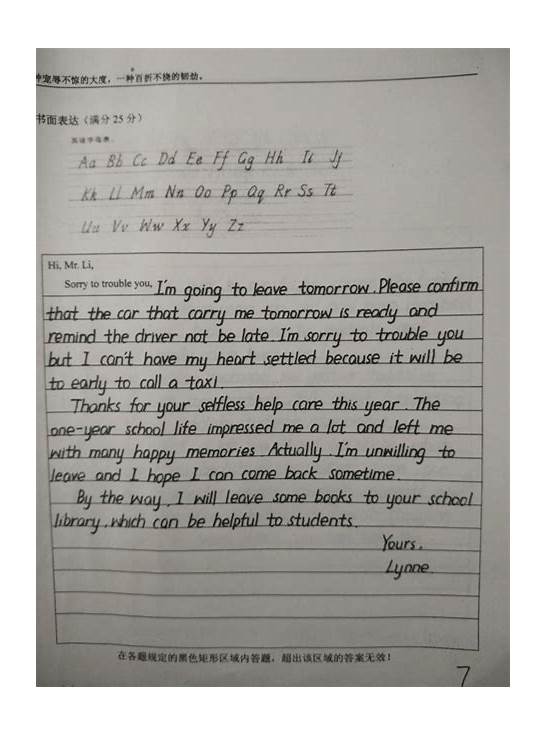 宠辱不惊的大度，一种百折不挠的韧劲。
书面表达（满分 25 分）
英语字母表
Aa Bb Cc Dd Ee Ff Gg Hh Ii Jj
Kk Ll Mm Nn Oo Pp Qq Rr Ss Tt
Uu Vv Ww Xx Yy Zz
Hi, Mr. Li,
Sorry to trouble you, I'm going to leave tomorrow. Please confirm
that the car that carry me tomorrow is ready and
remind the driver not be late. I'm sorry to trouble you
but I can't have my heart settled because it will be
to early to call a taxi.
Thanks for your selfless help care this year. The
one-year school life impressed me a lot and left me
with many happy memories. Actually. I'm unwilling to
leave and I hope I can come back sometime.
By the way, I will leave some books to your school
library, which can be helpful to students.
Yours,
Lynne
在各题规定的黑色矩形区域内答题，超出该区域的答案无效！
7